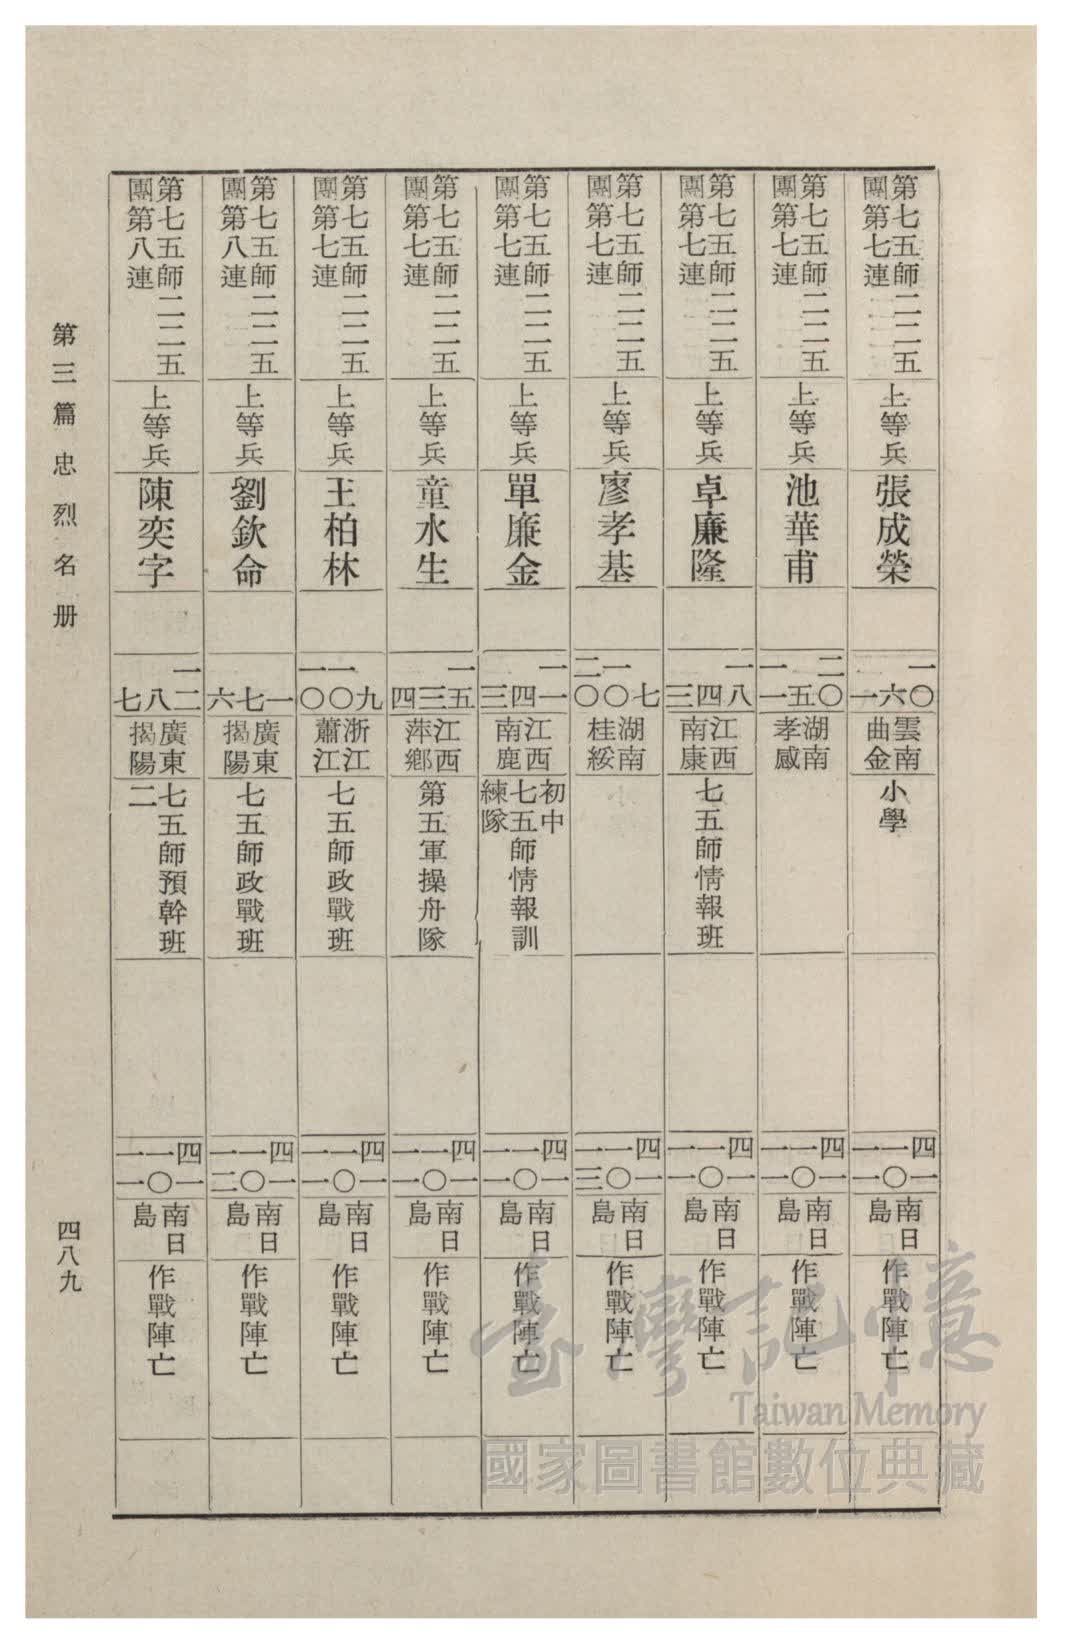 第七五師二二五
團第七連
上等兵
張成榮
一〇
六
一
雲南
曲金
小學
四一
一〇
一一
南日
島
作戰陣亡
第七五師二二五
團第七連
上等兵
池華甫
二〇
五
一一
湖南
孝感
四一
一〇
一一
南日
島
作戰陣亡
第七五師二二五
團第七連
上等兵
卓廉隆
一八
四
三
江西
南康
七五師情報班
四一
一〇
一一
南日
島
作戰陣亡
第七五師二二五
團第七連
上等兵
廖孝基
七
一〇
二〇
湖南
桂綏
四一
一〇
一三
南日
島
作戰陣亡
第七五師二二五
團第七連
上等兵
單廉金
一一
四
三
江西
南鹿
初中
七五師情報訓
練隊
四一
一〇
一一
南日
島
作戰陣亡
第七五師二二五
團第七連
上等兵
童水生
一五
三
四
江西
萍鄉
第五軍操舟隊
四一
一〇
一一
南日
島
作戰陣亡
第七五師二二五
團第七連
上等兵
王柏林
九
一〇
一〇
浙江
蕭江
七五師政戰班
四一
一〇
一一
南日
島
作戰陣亡
第七五師二二五
團第八連
上等兵
劉欽命
一
七
六
廣東
揭陽
七五師政戰班
四一
一〇
一二
南日
島
作戰陣亡
第七五師二二五
團第八連
上等兵
陳奕字
一二
八
七
廣東
揭陽
七五師預幹班
二
四一
一〇
一一
南日
島
作戰陣亡
第三篇 忠烈名册
四八九
臺灣記憶
Taiwan Memory
國家圖書館數位典藏